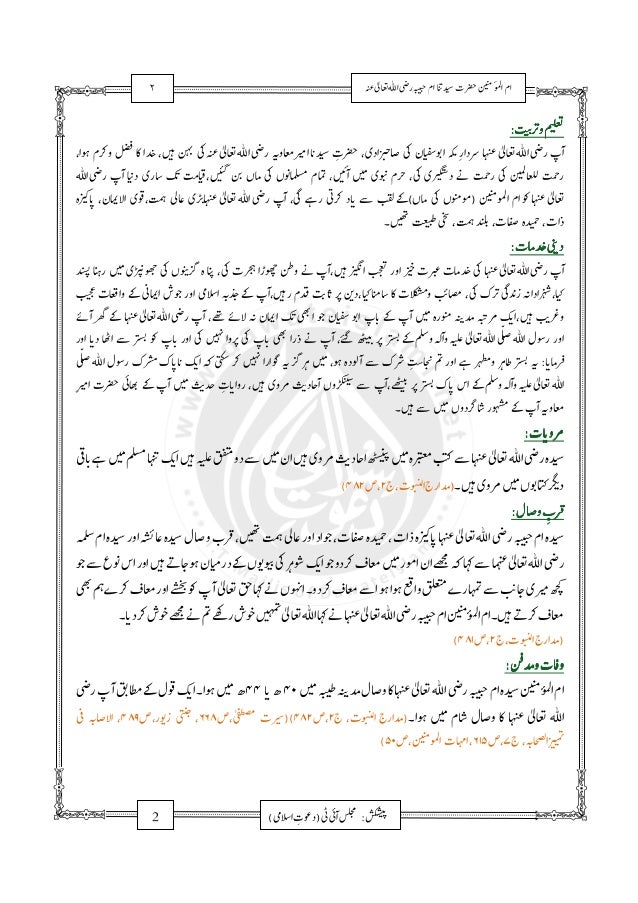 ام المؤمنین حضرت سیدتنا ام حبیبہ رضی اللہ تعالیٰ عنہ
۲
تعلیم وتربیت:
آپ رضی اللہ تعالیٰ عنہا سردارِ مکہ ابوسفیان کی صاحبزادی، حضرتِ سیدنا امیر معاویہ رضی اللہ تعالیٰ عنہ کی بہن ہیں، خدا کا فضل و کرم ہوا،
رحمت للعالمین کی رحمت نے دستگیری کی، حرم نبوی میں آئیں، تمام مسلمانوں کی ماں بن گئیں، قیامت تک ساری دنیا آپ رضی اللہ
تعالیٰ عنہا کو ام المومنین (مومنوں کی ماں) کے لقب سے یاد کرتی رہے گی، آپ رضی اللہ تعالیٰ عنہا بڑی عالی ہمت، قوی الایمان، پاکیزہ
ذات، حمیدہ صفات، بلند ہمت، سخی طبیعت تھیں۔
دینی خدمات:
آپ رضی اللہ تعالیٰ عنہا کی خدمات عبرت خیز اور تعجب انگیز ہیں، آپ نے وطن چھوڑا ہجرت کی، شاہانہ پھونس کی جھونپڑی میں رہنا پسند
کیا، شہزادانہ زندگی ترک کی، مصائب و مشکلات کا سامنا کیا، دین پر ثابت قدم رہیں، آپ کے جذبہ اسلامی اور جوش ایمانی کے واقعات عجیب
وغریب ہیں، ایک مرتبہ مدینہ منورہ میں آپ کے باپ ابو سفیان جو ابھی تک ایمان نہ لائے تھے، آپ رضی اللہ تعالیٰ عنہا کے گھر آئے
اور رسول اللہ صلّی اللہ تعالیٰ علیہ وآلہ وسلم کے بستر پر بیٹھ گئے، آپ نے ذرا بھی باپ کی پرواہ نہیں کی اور باپ کو بستر سے اٹھا دیا اور
فرمایا: یہ بستر طاہر ومطہر ہے اور تم نجاستِ شرک سے آلودہ ہو، میں ہرگز یہ گوارا نہیں کر سکتی کہ ایک ناپاک مشرک رسول اللہ صلّی
اللہ تعالیٰ علیہ وآلہ وسلم کے اس پاک بستر پر بیٹھے، آپ سے سینکڑوں احادیث مروی ہیں، روایاتِ حدیث میں آپ کے بھائی حضرت امیر
معاویہ آپ کے مشہور شاگردوں میں سے ہیں۔
مرویات:
سیدہ رضی اللہ تعالیٰ عنہا سے کتبِ معتبرہ میں پینسٹھ احادیث مروی ہیں ان میں سے دو متفق علیہ ہیں ایک تنہا مسلم میں ہے باقی
دیگر کتابوں میں مروی ہیں۔ (مدارج النبوت، ج۲، ص۴۸۲)
قربِ وصال:
سیدہ ام حبیبہ رضی اللہ تعالیٰ عنہا پاکیزہ ذات، حمیدہ صفات، جواد اور عالی ہمت تھیں، قرب وصال سیدہ عائشہ اور سیدہ ام سلمہ
رضی اللہ تعالیٰ عنہما سے کہا کہ مجھے ان امور میں معاف کردو جو ایک شوہر کی بیویوں کے درمیان ہو جاتے ہیں اور اس نوع سے جو
کچھ میری جانب سے تمہارے متعلق واقع ہوا ہو اسے معاف کردو۔ انہوں نے کہا حق تعالیٰ آپ کو بخشے اور معاف کرے ہم بھی
معاف کرتے ہیں۔ ام المؤمنین ام حبیبہ رضی اللہ تعالیٰ عنہا نے کہا اللہ تعالیٰ تمہیں خوش رکھے تم نے مجھے خوش کر دیا۔
(مدارج النبوت، ج۲، ص۴۸۱)
وفات ومدفن:
ام المؤمنین سیدہ ام حبیبہ رضی اللہ تعالیٰ عنہا کا وصال مدینہ طیبہ میں ۴۰ھ یا ۴۴ھ میں ہوا۔ ایک قول کے مطابق آپ رضی
اللہ تعالیٰ عنہا کا وصال شام میں ہوا۔ (مدارج النبوت، ج۲، ص۴۸۲) (سیرت مصطفیٰ، ص۶۶۸، جنتی زیور، ص۴۸۹، الاصابہ فی
تمییز الصحابہ، ج۷، ص۶۱۵، امہات المومنین، ص۵۰)
پیشکش: مجلس آئی ٹی (دعوتِ اسلامی)
2